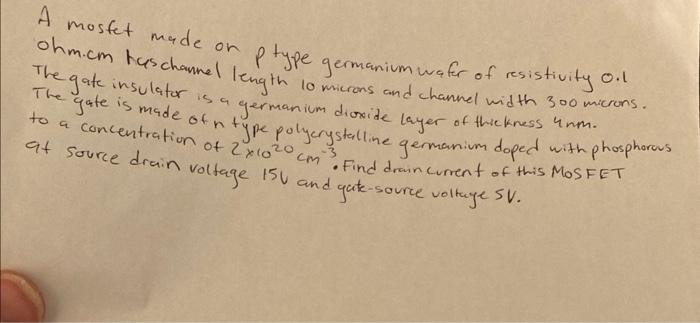 A mosfet made on p type germanium wafer of resistivity 0.1
ohm.cm has channel length 10 microns and channel width 300 microns.
The gate insulator is a germanium dioxide layer of thickness 4nm.
The gate is made of n type polycrystalline germanium doped with phosphorous
to a concentration of 2x10^20 cm^-3. Find drain current of this MOSFET
at source drain voltage 15V and gate-source voltage 5V.